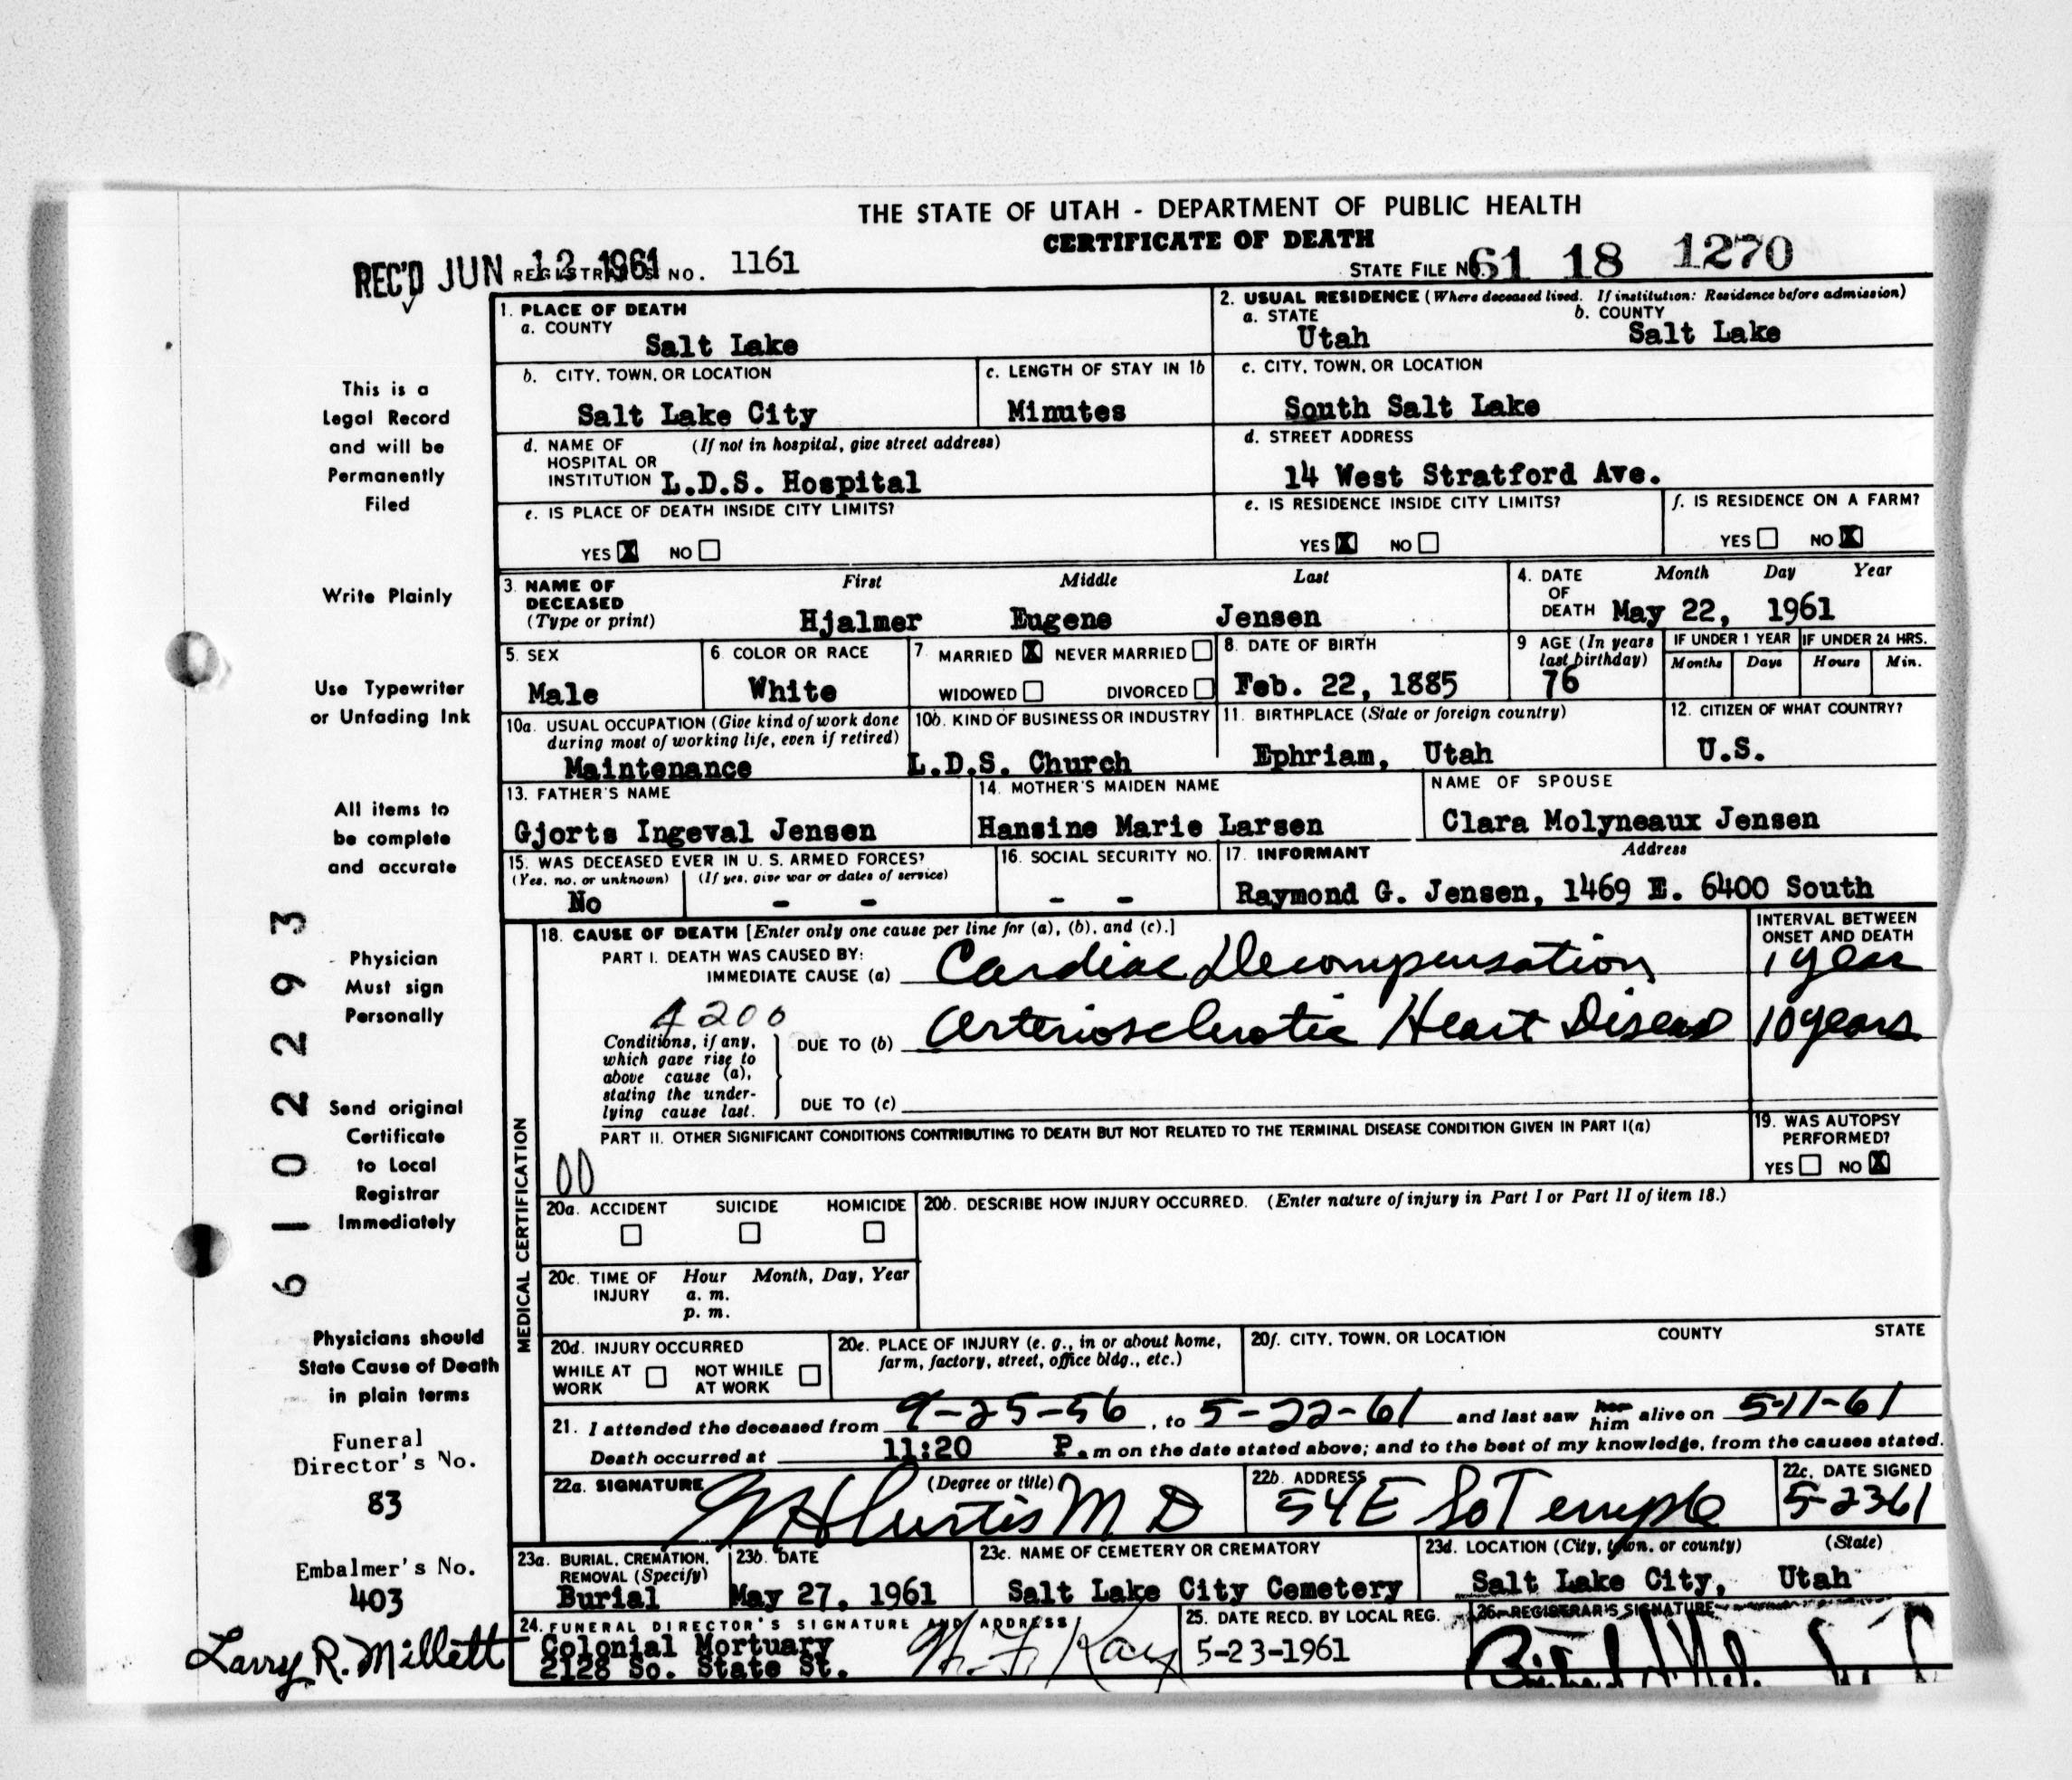 THE STATE OF UTAH - DEPARTMENT OF PUBLIC HEALTH
CERTIFICATE OF DEATH
REC'D JUN 12 1961 REGISTRAR'S NO. 1161
STATE FILE NO. 61 18 1270
This is a
Legal Record
and will be
Permanently
Filed
Write Plainly
Use Typewriter
or Unfading Ink
All items to
be complete
and accurate
Physician
Must sign
Personally
Send original
Certificate
to Local
Registrar
Immediately
Physicians should
State Cause of Death
in plain terms
Funeral
Director's No.
83
Embalmer's No.
403
Larry R. Millett
61022293
1. PLACE OF DEATH
a. COUNTY
Salt Lake
2. USUAL RESIDENCE (Where deceased lived. If institution: Residence before admission)
a. STATE b. COUNTY
Utah Salt Lake
b. CITY, TOWN, OR LOCATION
Salt Lake City
c. LENGTH OF STAY IN 1b
Minutes
c. CITY, TOWN, OR LOCATION
South Salt Lake
d. NAME OF (If not in hospital, give street address)
HOSPITAL OR
INSTITUTION L.D.S. Hospital
d. STREET ADDRESS
14 West Stratford Ave.
e. IS PLACE OF DEATH INSIDE CITY LIMITS?
YES X NO
e. IS RESIDENCE INSIDE CITY LIMITS?
YES X NO
f. IS RESIDENCE ON A FARM?
YES NO X
3. NAME OF First Middle Last
DECEASED
(Type or print) Hjalmer Eugene Jensen
4. DATE Month Day Year
OF
DEATH May 22, 1961
5. SEX
Male
6. COLOR OR RACE
White
7. MARRIED X NEVER MARRIED
WIDOWED DIVORCED
8. DATE OF BIRTH
Feb. 22, 1885
9 AGE (In years
last birthday)
76
IF UNDER 1 YEAR IF UNDER 24 HRS.
Months Days Hours Min.
10a. USUAL OCCUPATION (Give kind of work done
during most of working life, even if retired)
Maintenance
10b. KIND OF BUSINESS OR INDUSTRY
L.D.S. Church
11. BIRTHPLACE (State or foreign country)
Ephriam, Utah
12. CITIZEN OF WHAT COUNTRY?
U.S.
13. FATHER'S NAME
Gjorts Ingeval Jensen
14. MOTHER'S MAIDEN NAME
Hansine Marie Larsen
NAME OF SPOUSE
Clara Molyneaux Jensen
15. WAS DECEASED EVER IN U. S. ARMED FORCES?
(Yes, no, or unknown) (If yes, give war or dates of service)
No - -
16. SOCIAL SECURITY NO.
- -
17. INFORMANT Address
Raymond G. Jensen, 1469 E. 6400 South
MEDICAL CERTIFICATION
18. CAUSE OF DEATH [Enter only one cause per line for (a), (b), and (c).]
INTERVAL BETWEEN
ONSET AND DEATH
PART I. DEATH WAS CAUSED BY:
IMMEDIATE CAUSE (a) Cardiac Decompensation 1 year
4200
Conditions, if any,
which gave rise to
above cause (a),
stating the under-
lying cause last.
DUE TO (b) Arteriosclerotic Heart Disease 10 years
DUE TO (c)
PART II. OTHER SIGNIFICANT CONDITIONS CONTRIBUTING TO DEATH BUT NOT RELATED TO THE TERMINAL DISEASE CONDITION GIVEN IN PART I(a)
00
19. WAS AUTOPSY
PERFORMED?
YES NO X
20a. ACCIDENT SUICIDE HOMICIDE
20b. DESCRIBE HOW INJURY OCCURRED. (Enter nature of injury in Part I or Part II of item 18.)
20c. TIME OF Hour Month, Day, Year
INJURY a. m.
p. m.
20d. INJURY OCCURRED
WHILE AT WORK NOT WHILE AT WORK
20e. PLACE OF INJURY (e. g., in or about home,
farm, factory, street, office bldg., etc.)
20f. CITY, TOWN, OR LOCATION COUNTY STATE
21. I attended the deceased from 9-25-56, to 5-22-61 and last saw her him alive on 5-11-61
Death occurred at 11:20 P.m on the date stated above; and to the best of my knowledge, from the causes stated.
22a. SIGNATURE (Degree or title)
Curtis M D
22b. ADDRESS
54 E So Temple
22c. DATE SIGNED
5-2361
23a. BURIAL, CREMATION,
REMOVAL (Specify)
Burial
23b. DATE
May 27, 1961
23c. NAME OF CEMETERY OR CREMATORY
Salt Lake City Cemetery
23d. LOCATION (City, town, or county) (State)
Salt Lake City, Utah
24. FUNERAL DIRECTOR'S SIGNATURE AND ADDRESS
Colonial Mortuary
2128 So. State St.
Kay
25. DATE RECD. BY LOCAL REG.
5-23-1961
26. REGISTRAR'S SIGNATURE